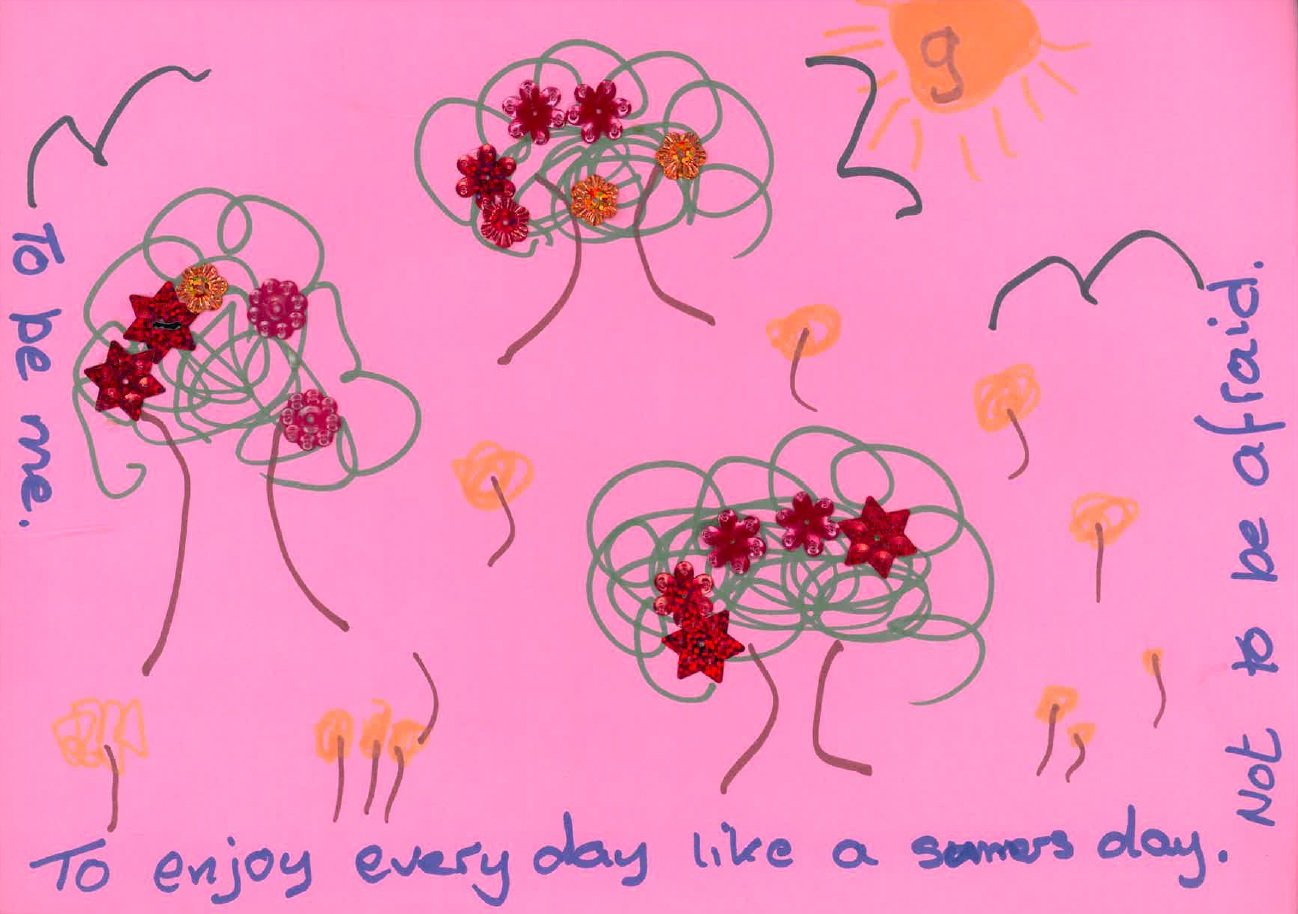 g
To be me.
To enjoy every day like a sumers day.
Not to be afraid.